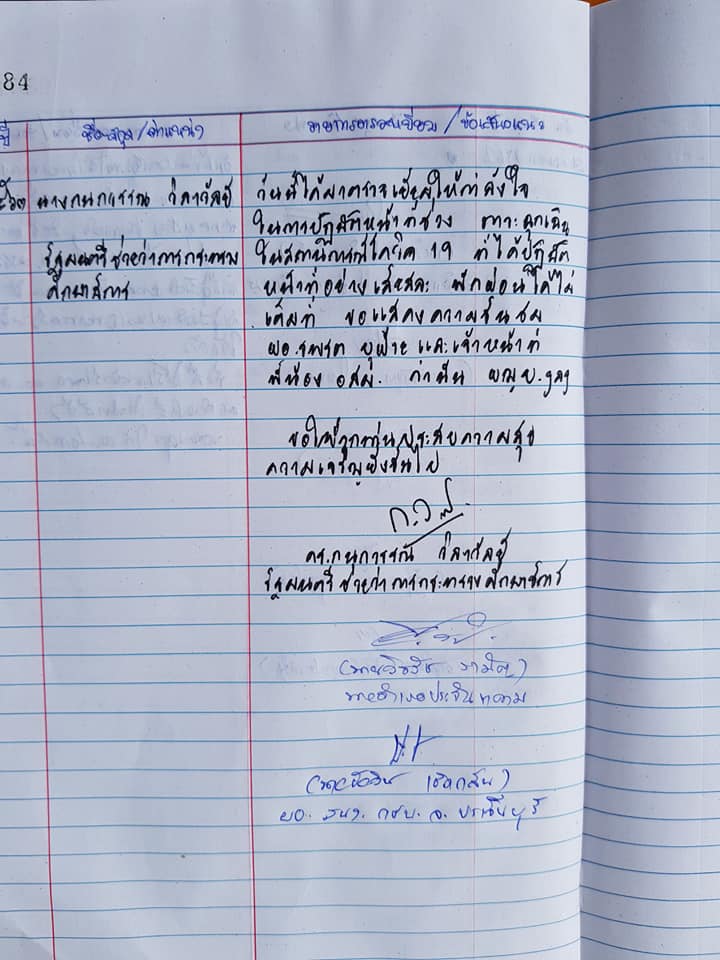 84
ที่ ชื่อสกุล/ตำแหน่ง รายการตรวจเยี่ยม/ข้อเสนอแนะ
นางกนกวรรณ วิลาวัลย์ วันนี้ได้มาตรวจเยี่ยมให้กำลังใจ
ในการปฏิบัติหน้าที่ช่วง ภาวะฉุกเฉิน
รัฐมนตรีช่วยว่าการกระทรวง ในสถานการณ์โควิด 19 ที่ได้ปฏิบัติ
ศึกษาธิการ หน้าที่อย่างเสียสละ พักผ่อนได้ไม่
เต็มที่ ขอแสดงความชื่นชม
ผอ.รพสต และเจ้าหน้าที่
พี่น้อง อสม. กำนัน ผญบ. ฯลฯ
ขอให้ทุกท่านประสบความสุข
ความเจริญยิ่งขึ้นไป
ดร.กนกวรรณ วิลาวัลย์
รัฐมนตรีช่วยว่าการกระทรวงศึกษาธิการ
นายอำเภอประจันตคาม
ผอ. สนง. กศน. จ. ปราจีนบุรี